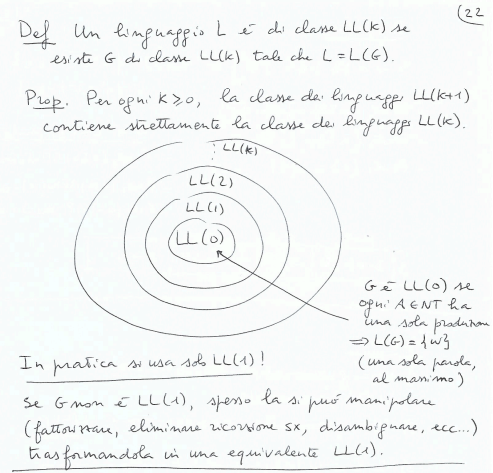 (22
Def Un linguaggio L è di classe LL(k) se
esiste G di classe LL(k) tale che L = L(G).
Prop. Per ogni k ≥ 0, la classe dei linguaggi LL(k+1)
contiene strettamente la classe dei linguaggi LL(k).
LL(k)
LL(2)
LL(1)
LL(0)
G è LL(0) se
ogni A ∈ NT ha
una sola produzione
⇒ L(G) = {w}
(una sola parola,
al massimo)
In pratica si usa solo LL(1)!
Se G non è LL(1), spesso la si può manipolare
(fattorizzare, eliminare ricorsione sx, disambiguare, ecc...)
trasformandola in una equivalente LL(1).